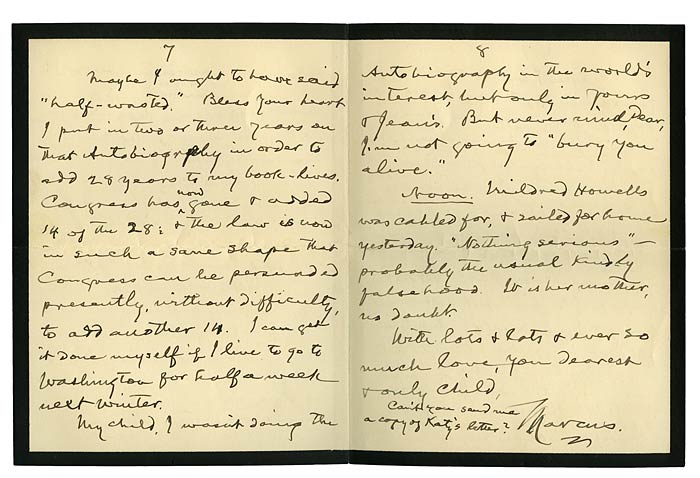 7
Maybe I ought to have said
"half-wasted." Bless your heart
I put in two or three years on
that Autobiography in order to
add 28 years to my book-lives.
Congress has now gone & added
14 of the 28: & the law is now
in such a sane shape that
Congress can be persuaded
presently, without difficulty,
to add another 14. I can get
it done myself if I live to go to
Washington for half a week
next winter.
My child, I wasn't doing the
8
Autobiography in the world's
interest, but only in yours
& Jean's. But never mind, dear,
I'm not going to "bury you
alive."
Noon. Mildred Howells
was cabled for, & sailed for home
yesterday. "Nothing serious"—
probably the usual kindly
falsehood. It is her mother,
no doubt.
With lots & lots & ever so
much love, you dearest
& only child,
Marcus.
Can't you send me
a copy of Katy's letter?